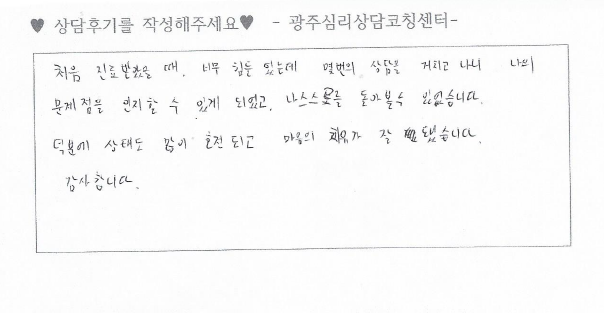 ♥ 상담후기를 작성해주세요♥ - 광주심리상담코칭센터-
처음 진료받았을 때, 너무 힘든 있는데 몇번의 상담을 거치고 나니 나의
문제점을 인지할 수 있게 되었고, 나스스로를 돌아볼수 있었습니다.
덕분에 상태도 많이 호전되고 마음의 치유가 잘 됐습니다.
감사합니다.